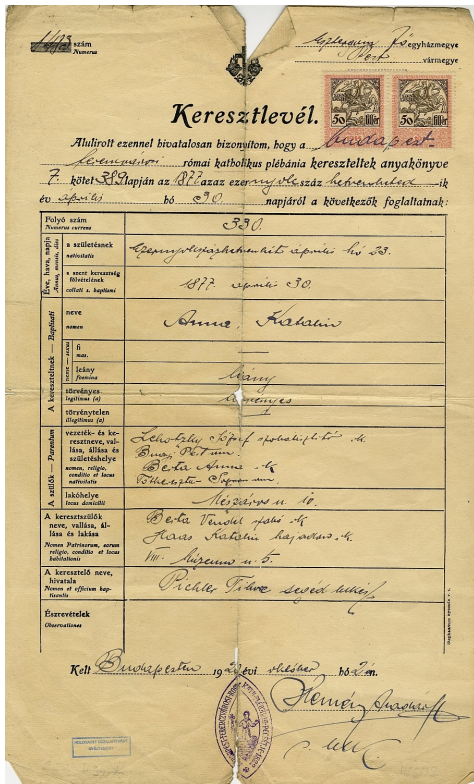 szám
Numerus
Esztergom Fő egyházmegye
Pest
vármegye
50 fillér 50 fillér
Keresztlevél.
Alulirott ezennel hivatalosan bizonyítom, hogy a budapest-
ferencvárosi római katholikus plébánia kereszteltek anyakönyve
7. kötet 389 lapján az 1877 azaz ezernyolcszáz hetvenheted-ik
év április hó 30. napjáról a következők foglaltatnak:
Folyó szám
Numerus currens
330.
Éve, hava, napja
Annus, mensis, dies
a születésnek
nativitatis
Ezernyolcszázhetvenhét április hó 23.
a szent keresztség
fölvételének
collati s. baptismi
1877. április 30.
A kereszteltnek — Baptisati
neve
nomen
Anna, Katalin
neme — sexus
fi
mas.
—
leány
foemina
leány
törvényes
legitimus (a)
törvényes
törvénytelen
illegitimus (a)
A szülők — Parentum
vezeték- és ke-
resztneve, val-
lása, állása és
születéshelye
nomen, religio,
conditio et locus
nativitatis
Lehotzky József
Berta Anna rk
lakóhelye
locus domicilii
Mészáros u. 10.
A keresztszülők
neve, vallása, ál-
lása és lakása
Nomen Patrinorum, eorum
religio, conditio et locus
habitationis
Berta Vendel rk
Haas Katalin hajadon rk
VIII. Múzeum u. 5.
A keresztelő neve,
hivatala
Nomen et officium bap-
tisantis
Pichler segédlelkész
Észrevételek
Observationes
Kelt Budapesten 192 évi október hó 2-án.